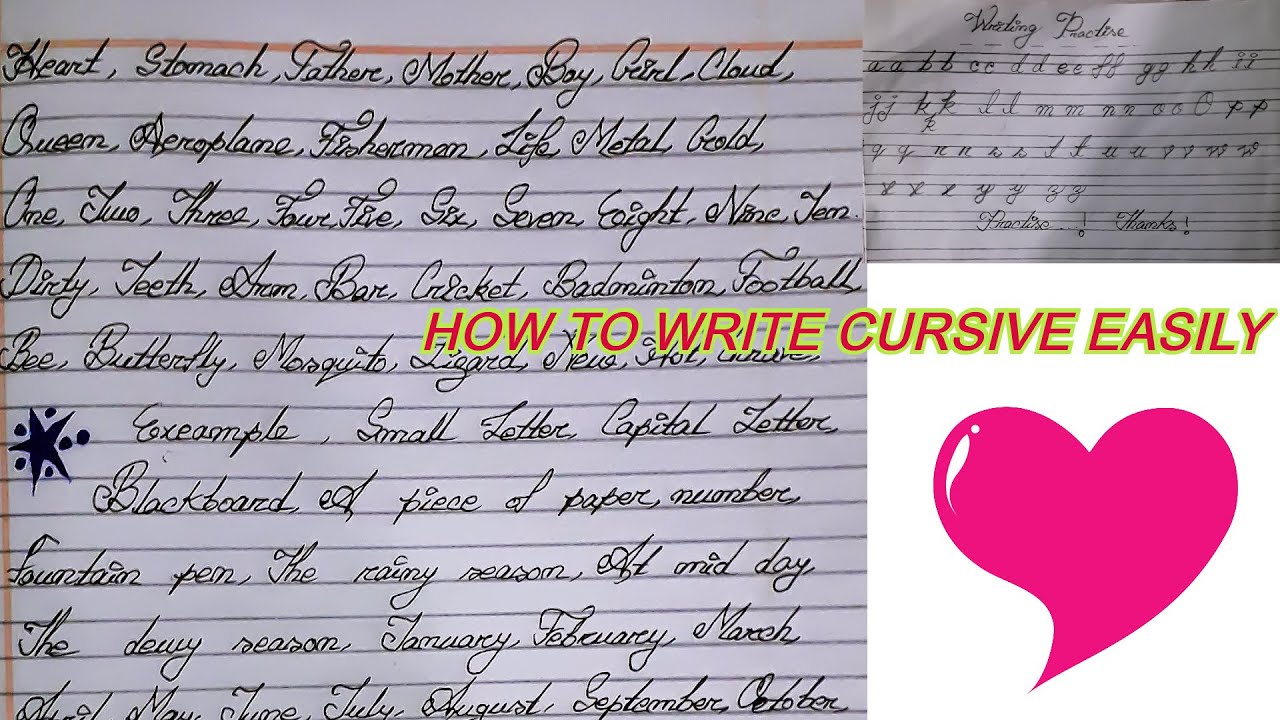 Heart, Stomach, Father, Mother, Boy, Girl, Cloud,
Queen, Aeroplane, Fisherman, Life, Metal, Gold,
One, Two, Three, Four, Five, Six, Seven, Eight, Nine, Ten.
Dirty, Teeth, Arm, Bar, Cricket, Badminton, Football,
Bee, Butterfly, Mosquito, Lizard, New, Hot,
Exeample , Small Letter, Capital Letter,
Blackboard, A piece of paper, number,
Fountain pen, The rainy season, At mid day,
The dewy season, January, February, March
April, May, June, July, August, September, October,
Writing Practise
a a b b c c d d e e f f g g h h i i
j j k k l l m m n n o o O p p
k
q q r r s s t t u u v v w w
x x x y y z z
Practise...! Thanks!
HOW TO WRITE CURSIVE EASILY